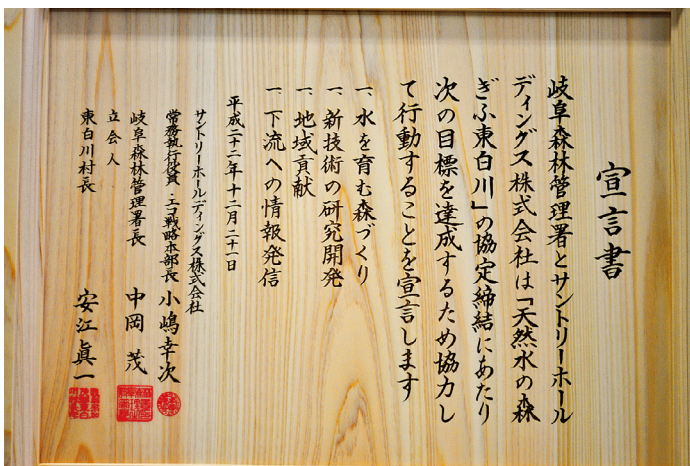 宣言書
岐阜森林管理署とサントリーホール
ディングス株式会社は「天然水の森
ぎふ東白川」の協定締結にあたり
次の目標を達成するため協力し
て行動することを宣言します
一、水を育む森づくり
一、新技術の研究開発
一、地域貢献
一、下流への情報発信
平成二十二年十二月二十一日
サントリーホールディングス株式会社
常務執行役員・エコ戦略本部長 小嶋幸次
岐阜森林管理署長 中岡 茂
立会人
東白川村長 安江眞一